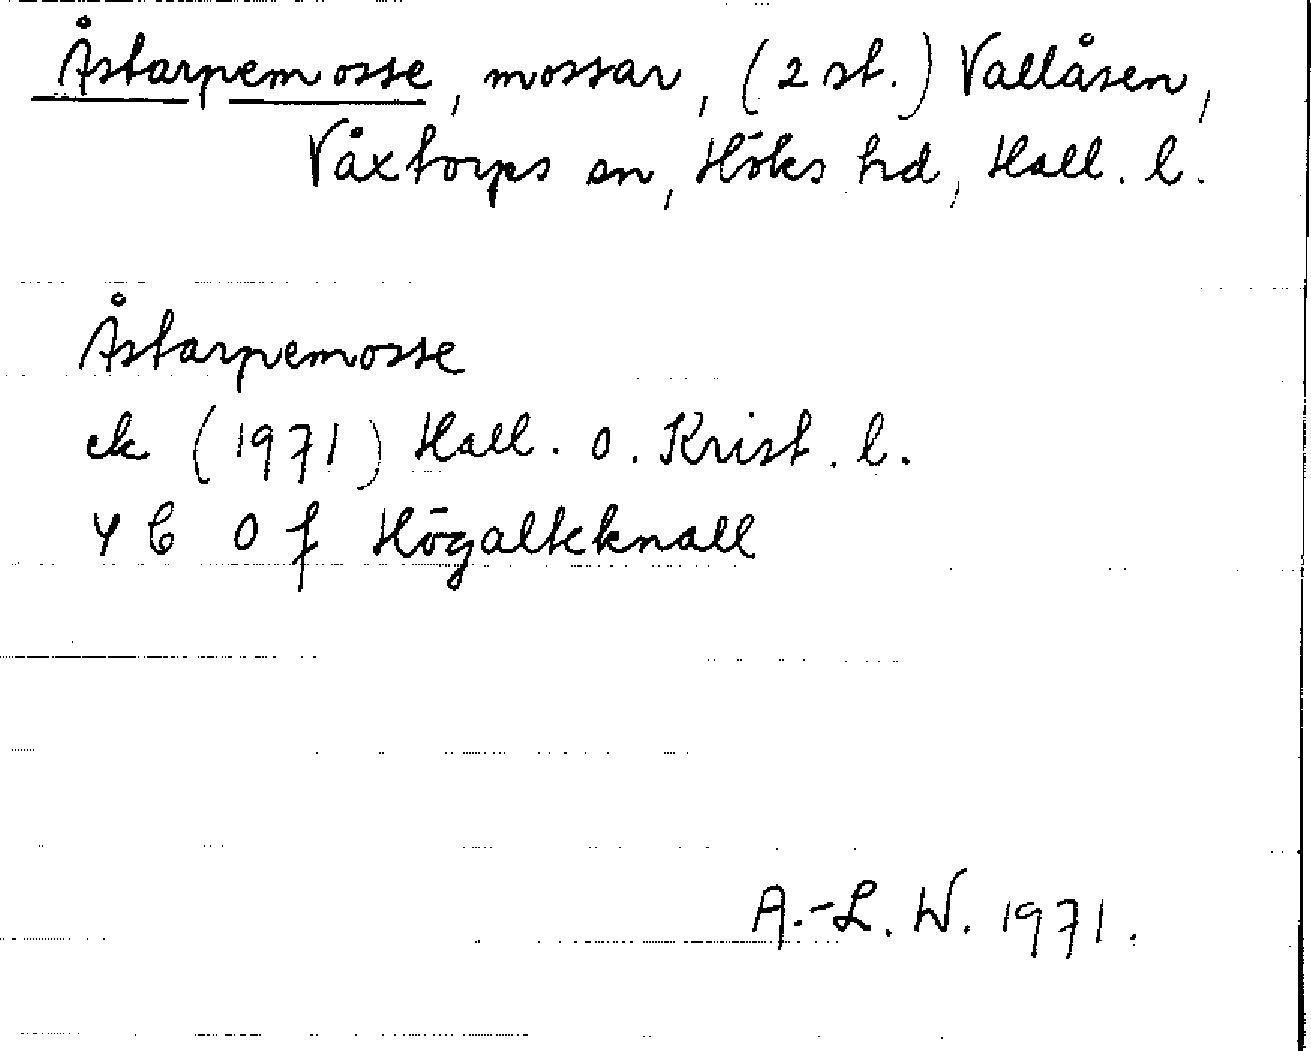 Åstarpemosse, mossar, (2 st.) Vallåsen,
Våxtorps sn, Höks hd, Hall. l.
Åstarpemosse
ek (1971) Hall. o. Krist. l.
4 C 0 f Högalteknall
A.-L. W. 1971.